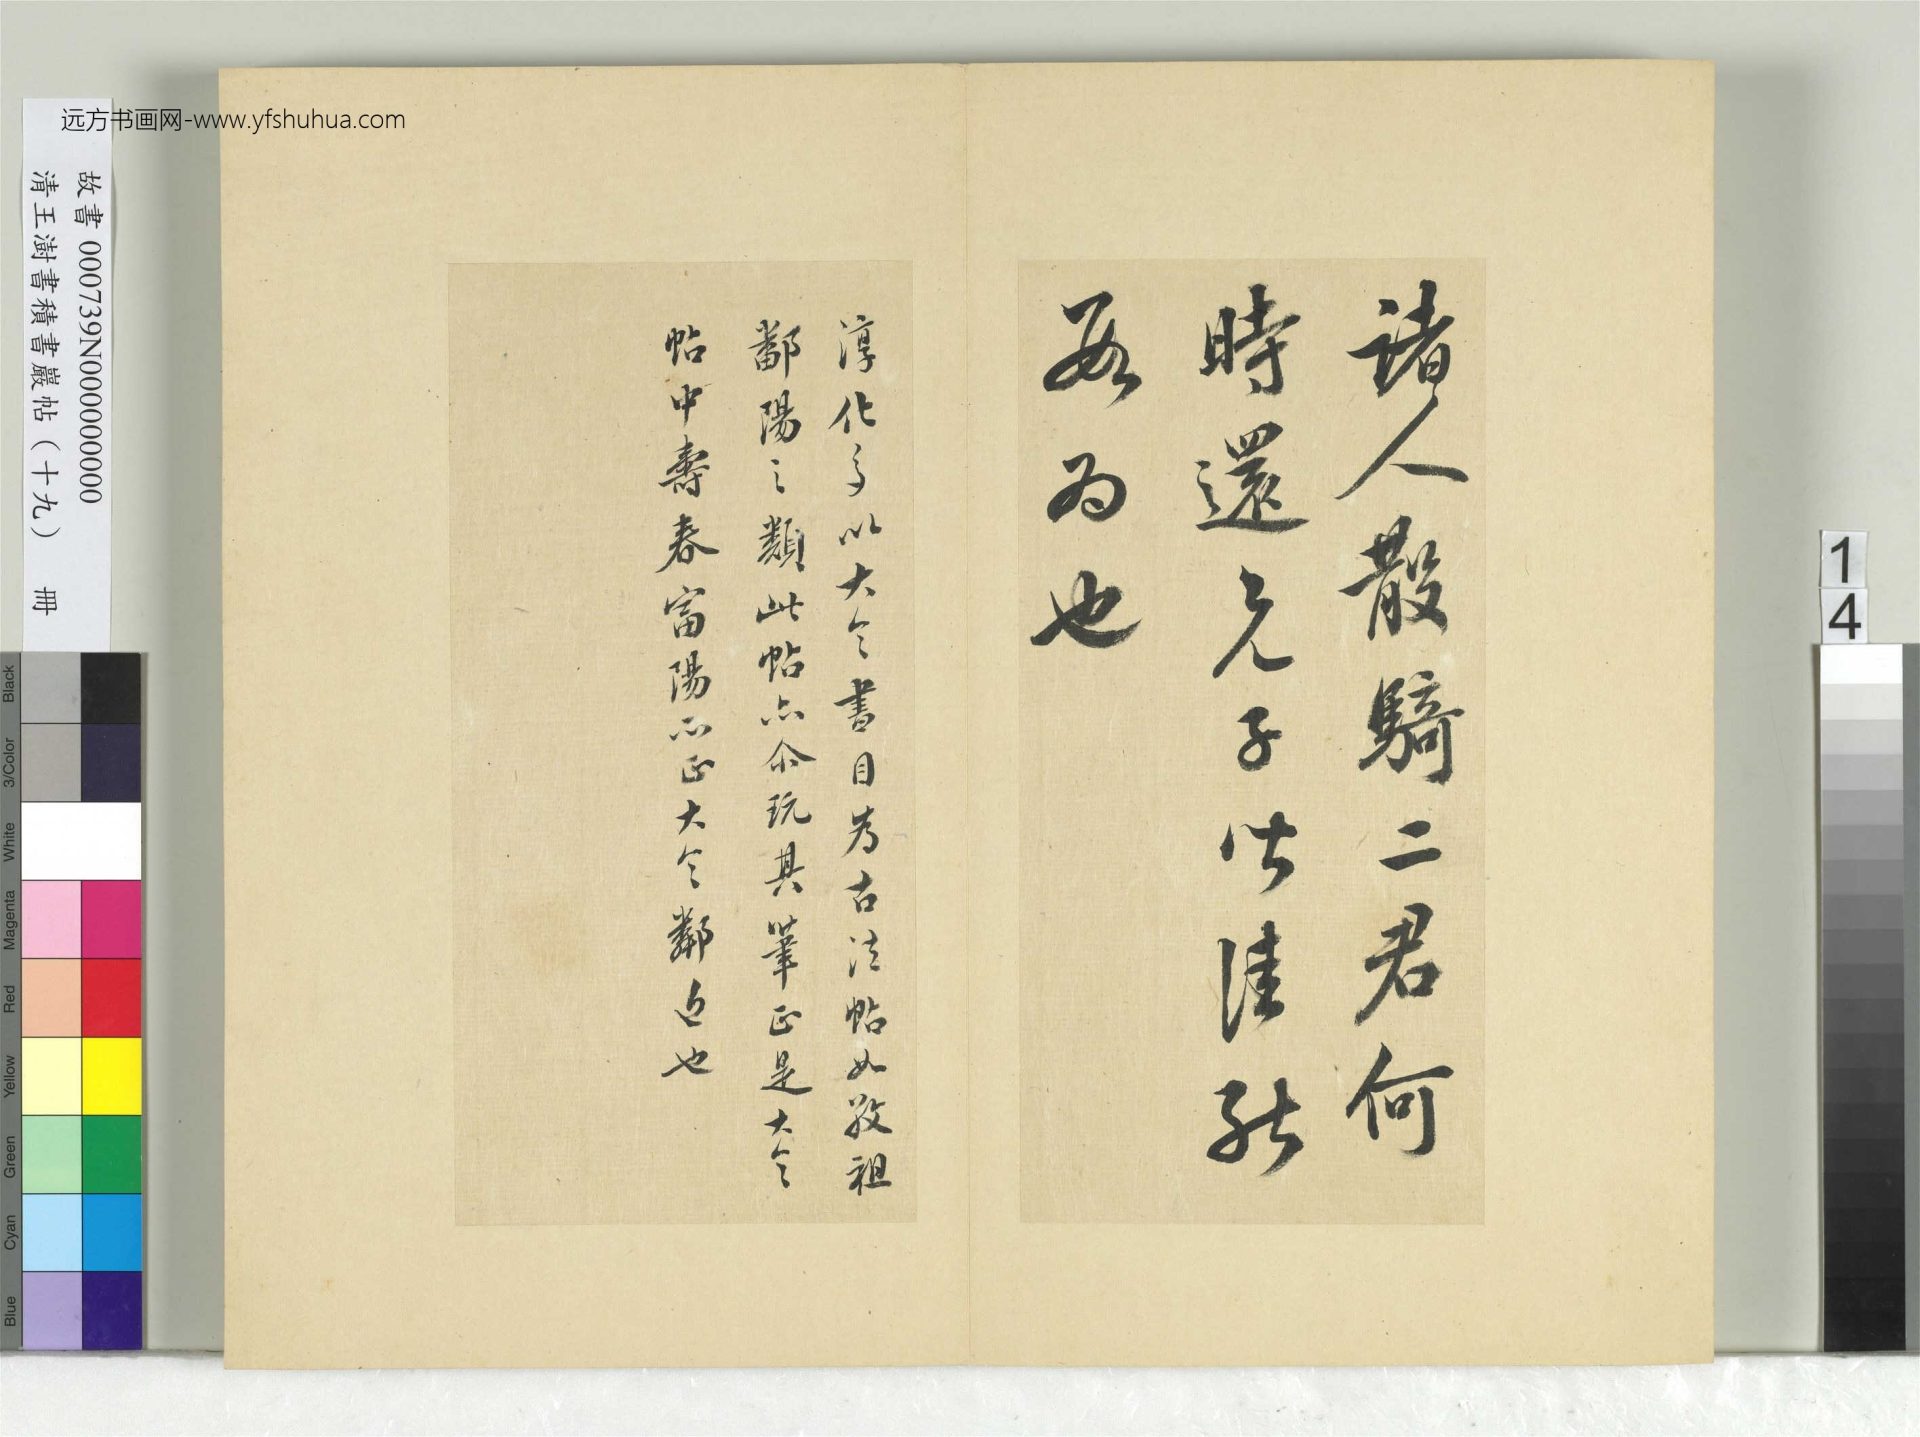 诸人散騎二君何
時還兄子皆佳能
為也
淳化多以大令書目為古法帖如敬祖
鄱陽之類此帖亦尒玩其筆正是大令
帖中壽春富陽亦正大令鄰近也
远方书画网-www.yfshuhua.com
故書 000739N000000000
清王澍書積書巖帖（十九） 冊
1
4
Black
3/Color
White
Magenta
Red
Yellow
Green
Cyan
Blue